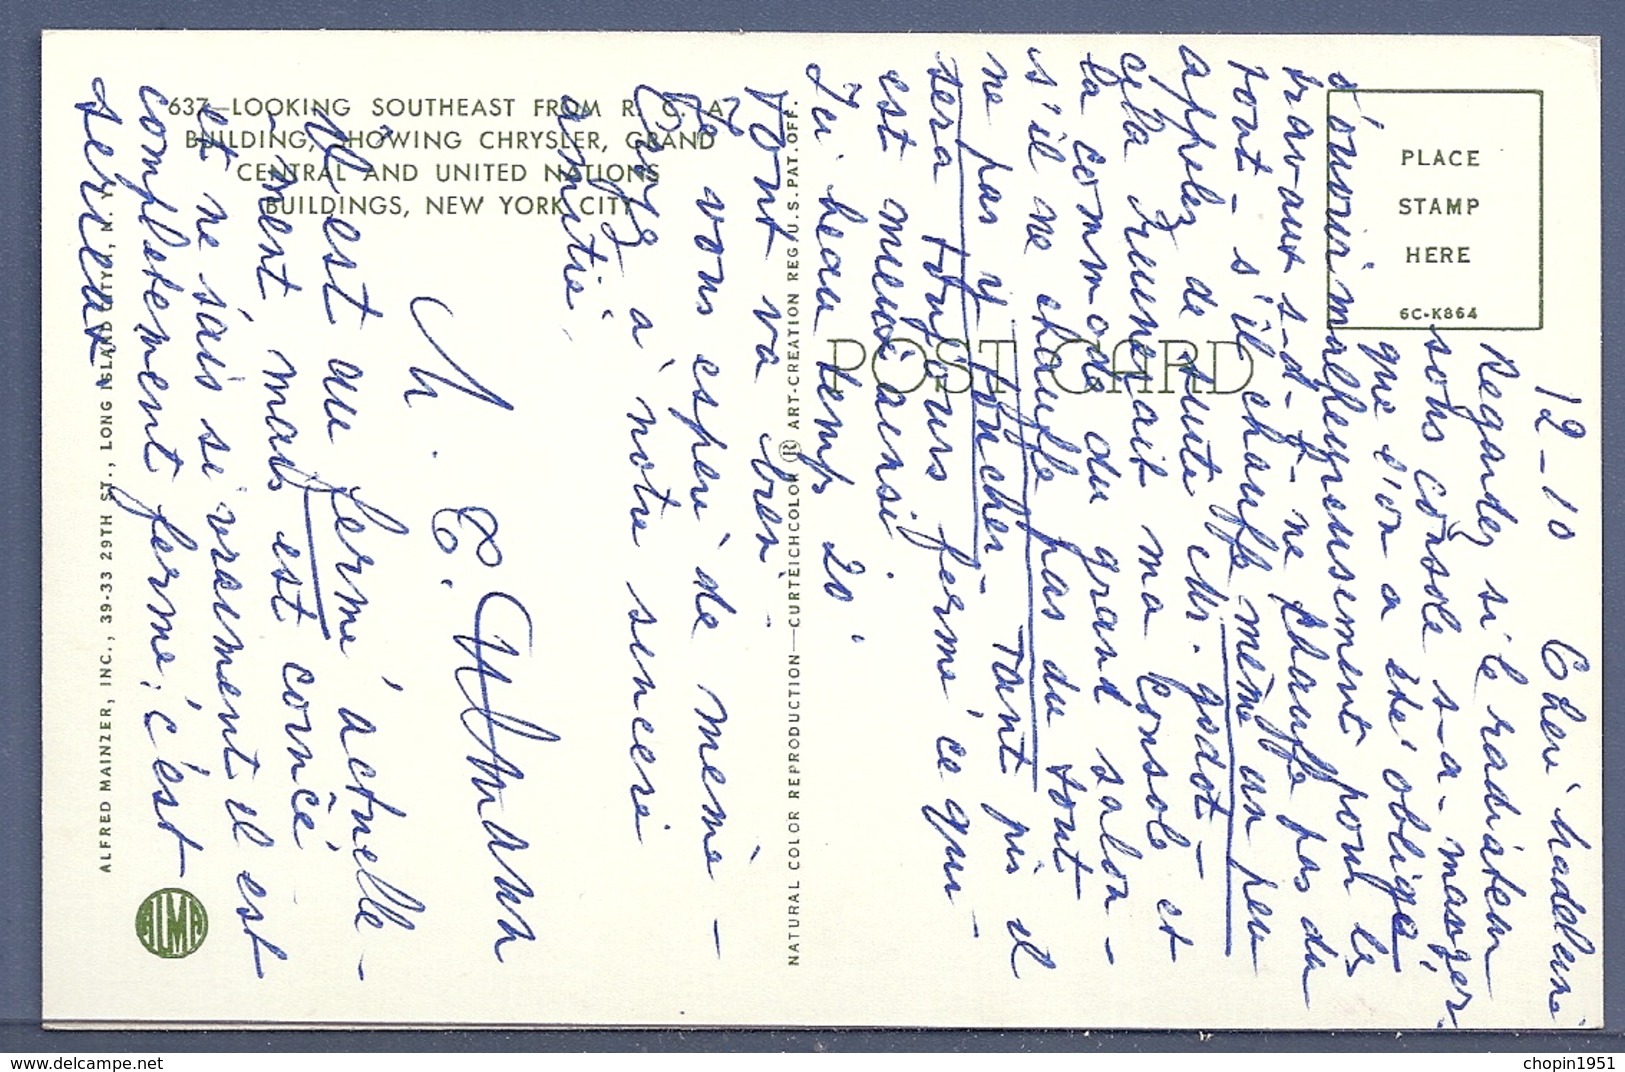 637—LOOKING SOUTHEAST FROM R. C. A.
BUILDING, SHOWING CHRYSLER, GRAND
CENTRAL AND UNITED NATIONS
BUILDINGS, NEW YORK CITY
PLACE
STAMP
HERE
6C-K864
POST CARD
ALFRED MAINZER, INC., 39-33 29TH ST., LONG ISLAND CITY, N. Y.
ALMA
NATURAL COLOR REPRODUCTION—CURTEICHCOLOR ® ART-CREATION REG. U.S. PAT. OFF.
12-10 Chère
Regardez si le radiateur
sous console s-à-manger
que s'on a été obligé
d'ouvrir malheureusement pour les
travaux s-d-t- ne chauffe pas du
tout - s'il chauffe même un peu
appelez de suite chr. godot -
cela ruinerait ma console et
la commode du grand salon -
s'il ne chauffe pas du tout
ne pas y toucher - Tant pis il
sera toujours fermé ce qui
est mieux ainsi
Ici beau temps 20°
Tout va bien
Je vous espère de même -
Croyez à notre sincère
amitié.
M. E.
Il est au fermé actuelle-
ment mais est coincé
et ne sais si vraiment il est
complètement fermé, c'est
sérieux.
chopin1951